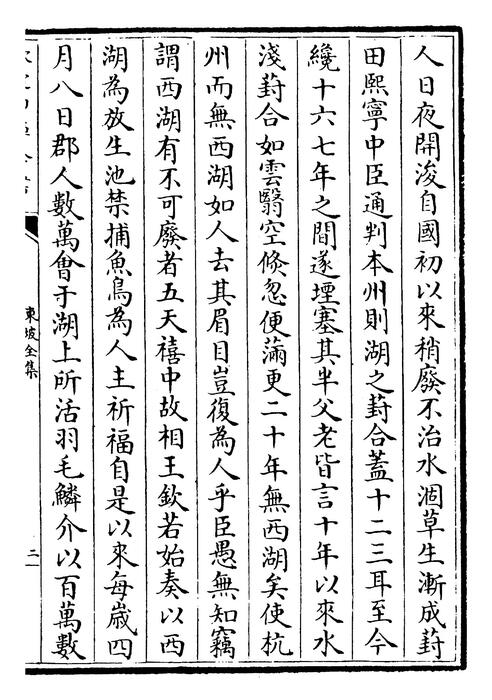 人日夜開浚自國初以來稍廢不治水涸草生漸成葑
田熙寧中臣通判本州則湖之葑合蓋十二三耳至今
纔十六七年之間遂堙塞其半父老皆言十年以來水
淺葑合如雲翳空倐忽便滿更二十年無西湖矣使杭
州而無西湖如人去其眉目豈復為人乎臣愚無知竊
謂西湖有不可廢者五天禧中故相王欽若始奏以西
湖為放生池禁捕魚鳥為人主祈福自是以來每歲四
月八日郡人數萬會于湖上所活羽毛鱗介以百萬數
東坡全集
二